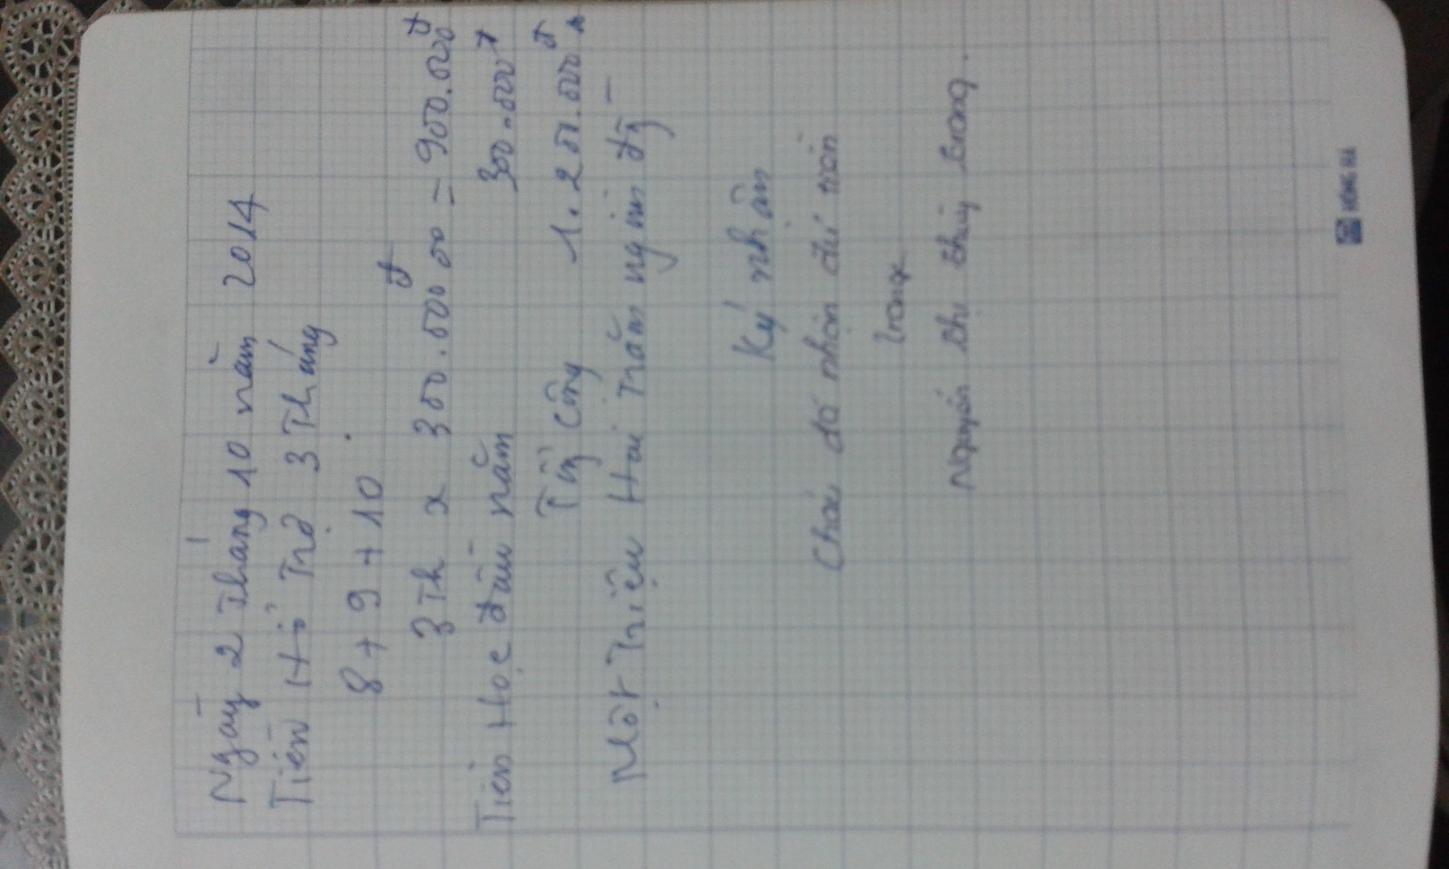 Ngày 2 Tháng 10 năm 2014
Tiền Hỗ Trợ 3 Tháng
8 + 9 + 10.
3 Th x 300.000đ = 900.000đ
Tiền Học đầu năm 300.000đ
Tổng Cộng 1.200.000đ
Một Triệu Hai Trăm nghìn đg
Ký nhận
Cháu đã nhận đủ tiền
Trang
Nguyễn thị thùy trang.
HỒNG HÀ